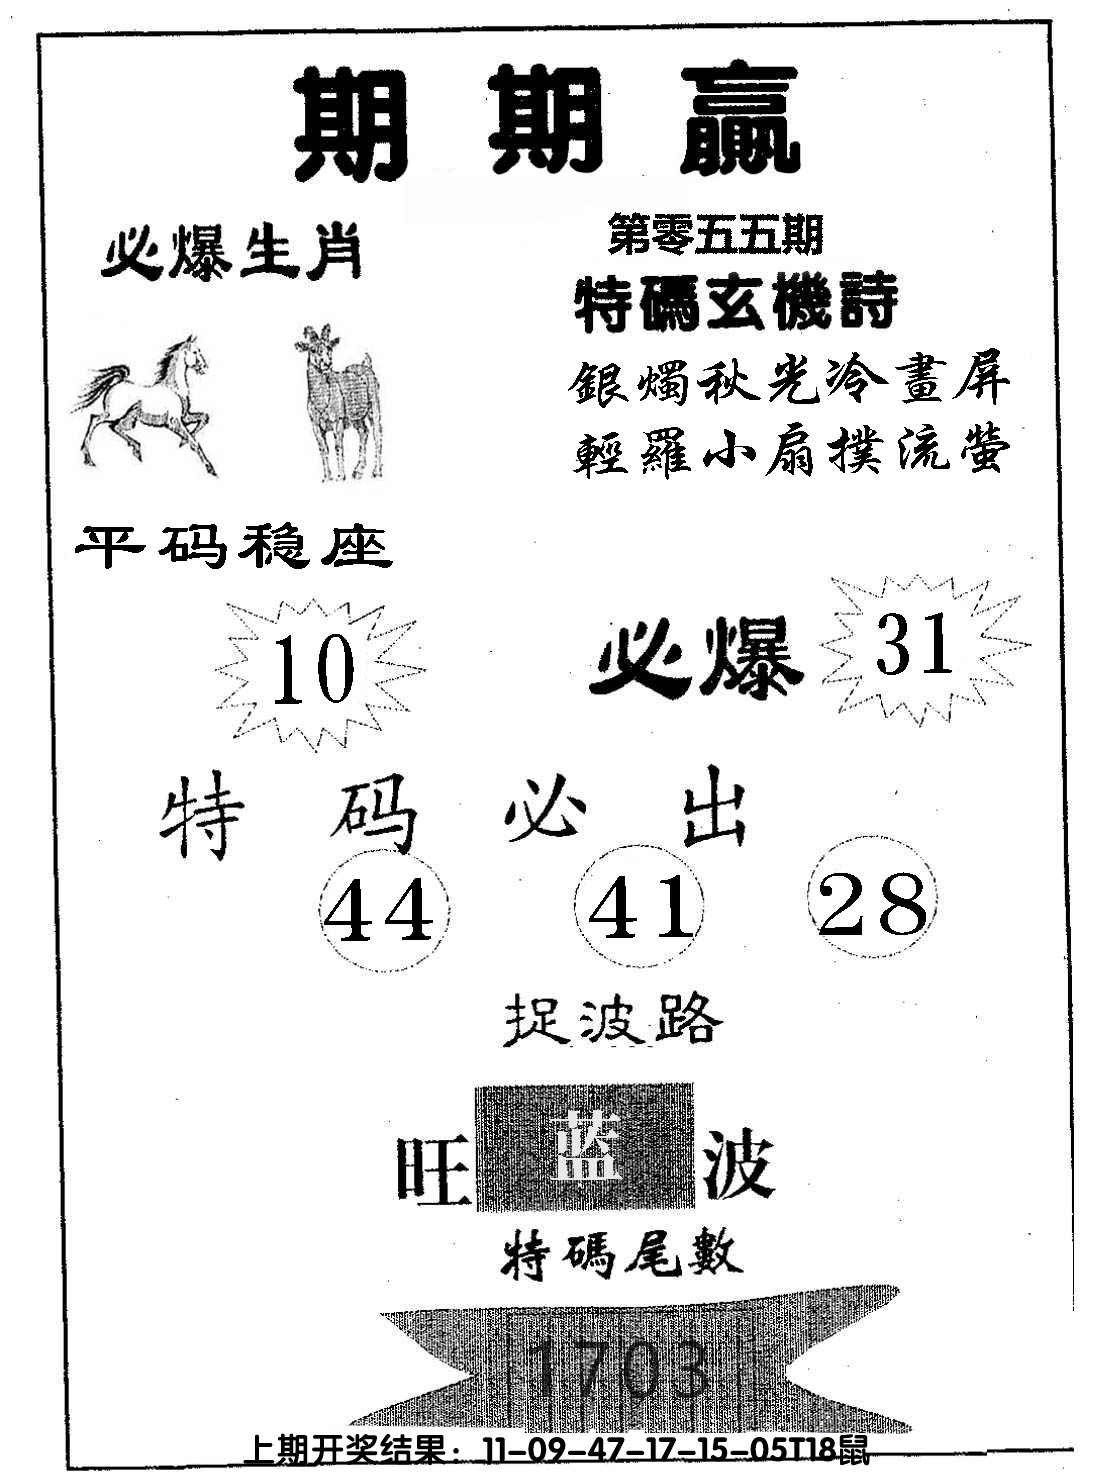 期期赢
必爆生肖
第零五五期
特碼玄機詩
銀燭秋光冷畫屏
輕羅小扇撲流螢
平码稳座
10
必爆
31
特码必出
44 41 28
捉波路
旺蓝波
特碼尾數
1703
上期开奖结果：11-09-47-17-15-05T18鼠